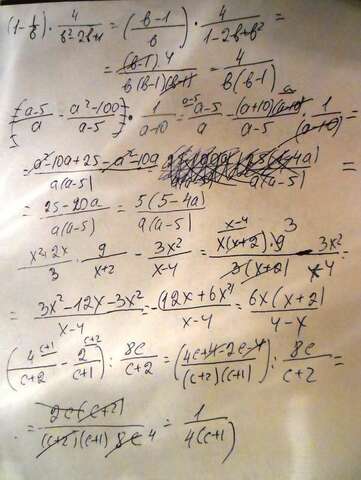 (1-1/в)·4/(в²-2в+1)=((в-1)/в)·4/(1-2в+в²)=
=(в-1)·4/(в(в-1)(в-1))=4/(в(в-1))
[(a-5)/a-(a²-100)/(a-5)]·1/(a-10)=(a-5)/a-(a+10)(a-10)/(a-5)·1/(a-10)=
=(a²-10a+25-a²-10a)/(a(a-5))=
=(25-20a)/(a(a-5))=5(5-4a)/(a(a-5))
(x²+2x)/3·9/(x+2)-3x²/(x-4)=x(x+2)·9/(3(x+2))-3x²/(x-4)=
=(3x²-12x-3x²)/(x-4)=(12x+6x²)/(x-4)=6x(x+2)/(4-x)
(4/(c+2)-2/(c+1)):8c/(c+2)=(4c+4-2c-4)/((c+2)(c+1)):8c/(c+2)=
=2c(c+2)/((c+2)(c+1)8c)=1/(4(c+1))